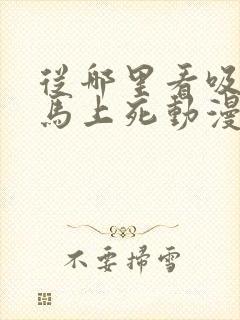 從哪里看吸
馬上死動漫
不要掃雪